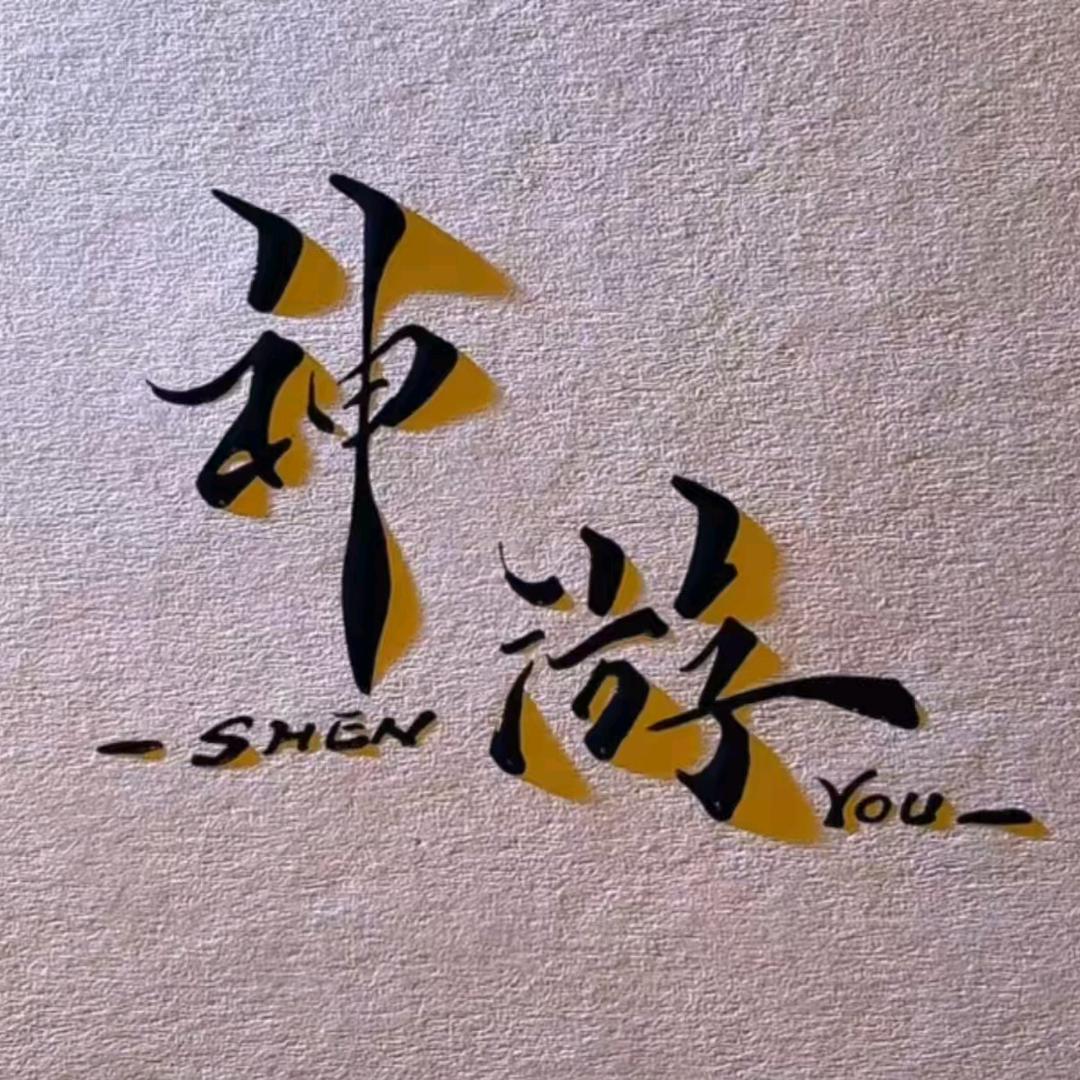 神游
- SHEN
YOU -